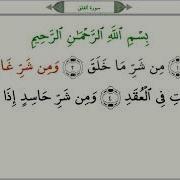 سورة الفلق
بِسْمِ اللَّهِ الرَّحْمَٰنِ الرَّحِيمِ
مِن شَرِّ مَا خَلَقَ ﴿٢﴾ وَمِن شَرِّ
فِي الْعُقَدِ ﴿٤﴾ وَمِن شَرِّ حَاسِدٍ إِذَا